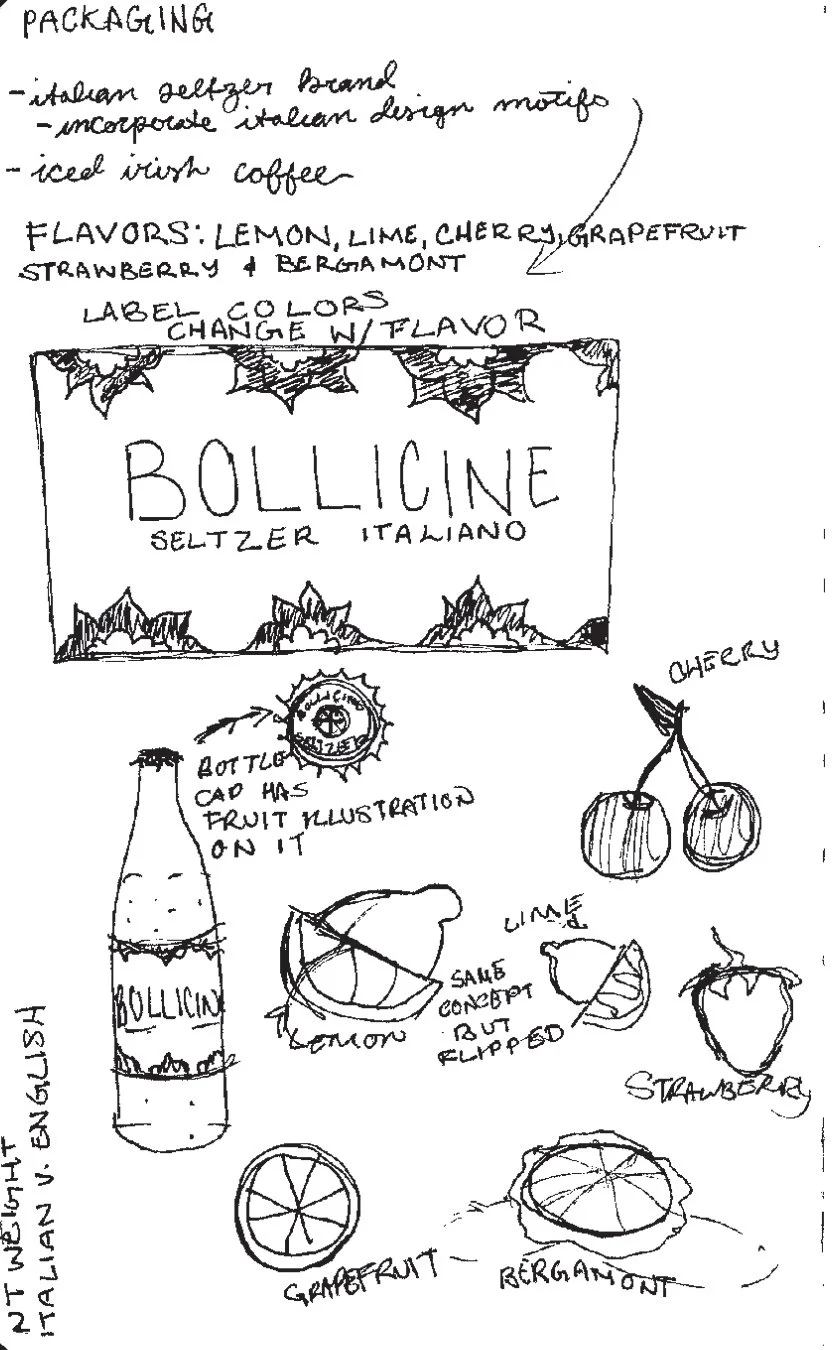 PACKAGING
-italian seltzer brand
-incorporate italian design motifs
-iced irish coffee
FLAVORS: LEMON, LIME, CHERRY, GRAPEFRUIT
STRAWBERRY & BERGAMONT
LABEL COLORS
CHANGE W/ FLAVOR
BOLLICINE
SELTZER ITALIANO
CHERRY
BOLLICINE
SELTZER
BOTTLE
CAP HAS
FRUIT ILLUSTRATION
ON IT
LIME
SAME
CONCEPT
BUT
FLIPPED
BOLLICIN
LEMON
STRAWBERRY
GRAPEFRUIT
BERGAMONT
NT WEIGHT
ITALIAN V. ENGLISH